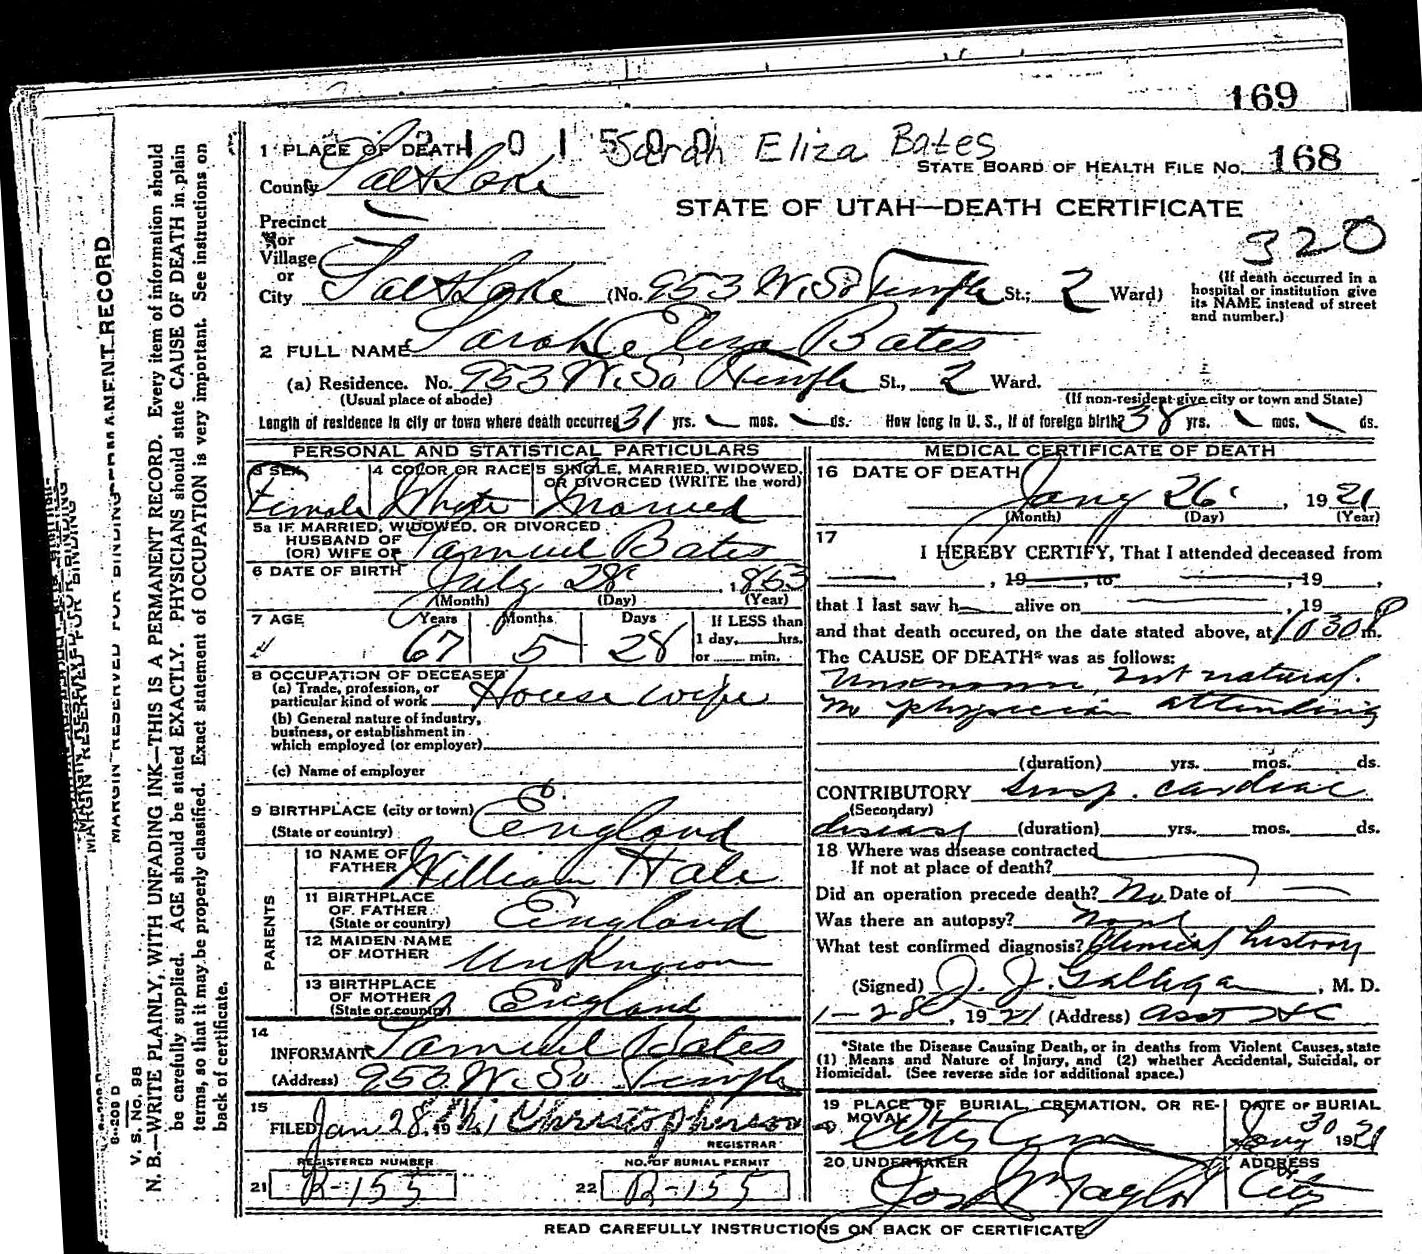 169
2101500 Sarah Eliza Bates
1 PLACE OF DEATH
STATE BOARD OF HEALTH FILE NO. 168
County Salt Lake
STATE OF UTAH—DEATH CERTIFICATE
Precinct
320
or
Village
or
City Salt Lake (No. 953 W. So Temple St.; 2 Ward)
(If death occurred in a hospital or institution give its NAME instead of street and number.)
2 FULL NAME Sarah Eliza Bates
(a) Residence. No. 953 W. So Temple St., 2 Ward.
(Usual place of abode) (If non-resident give city or town and State)
Length of residence in city or town where death occurred 31 yrs. mos. ds. How long in U. S., if of foreign birth? 38 yrs. mos. ds.
PERSONAL AND STATISTICAL PARTICULARS
3 SEX Female
4 COLOR OR RACE White
5 SINGLE, MARRIED, WIDOWED, OR DIVORCED (WRITE the word) Married
5a IF MARRIED, WIDOWED, OR DIVORCED
HUSBAND OF
(OR) WIFE OF Samuel Bates
6 DATE OF BIRTH July 28, 1853
(Month) (Day) (Year)
7 AGE 67 Years 5 Months 28 Days
If LESS than
1 day, hrs.
or min.
8 OCCUPATION OF DECEASED
(a) Trade, profession, or
particular kind of work House wife
(b) General nature of industry,
business, or establishment in
which employed (or employer)
(c) Name of employer
9 BIRTHPLACE (city or town)
(State or country) England
PARENTS
10 NAME OF
FATHER William Hale
11 BIRTHPLACE
OF FATHER
(State or country) England
12 MAIDEN NAME
OF MOTHER Unknown
13 BIRTHPLACE
OF MOTHER
(State or country) England
14
INFORMANT Samuel Bates
(Address) 953 W. So Temple
15
FILED Jan 28, 19 Christopherson
REGISTRAR
REGISTERED NUMBER
21 R-155
NO. OF BURIAL PERMIT
22 R-155
MEDICAL CERTIFICATE OF DEATH
16 DATE OF DEATH
Jany 26, 1921
(Month) (Day) (Year)
17
I HEREBY CERTIFY, That I attended deceased from
, 19 , to , 19 ,
that I last saw h alive on , 19
and that death occured, on the date stated above, at 1030 P m.
The CAUSE OF DEATH* was as follows:
Unknown, but natural.
No physician attending
(duration) yrs. mos. ds.
CONTRIBUTORY Susp. cardiac
(Secondary)
disease (duration) yrs. mos. ds.
18 Where was disease contracted
If not at place of death?
Did an operation precede death? No Date of
Was there an autopsy? None
What test confirmed diagnosis? Clinical history
(Signed) J. J. Galligan, M. D.
1-28, 1921 (Address) Asst
*State the Disease Causing Death, or in deaths from Violent Causes, state
(1) Means and Nature of Injury, and (2) whether Accidental, Suicidal, or
Homicidal. (See reverse side for additional space.)
19 PLACE OF BURIAL, CREMATION, OR RE-
MOVAL City Cem
DATE OF BURIAL
Jany 30 1921
20 UNDERTAKER
Jos Wm Taylor
ADDRESS
City
READ CAREFULLY INSTRUCTIONS ON BACK OF CERTIFICATE
MARGIN RESERVED FOR BINDING
V. S. No. 98
N. B.—WRITE PLAINLY, WITH UNFADING INK—THIS IS A PERMANENT RECORD. Every item of information should
be carefully supplied. AGE should be stated EXACTLY. PHYSICIANS should state CAUSE OF DEATH in plain
terms, so that it may be properly classified. Exact statement of OCCUPATION is very important. See instructions on
back of certificate.